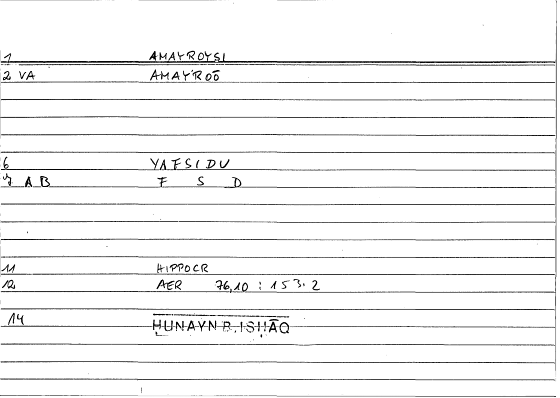 1 AMAYROYSI
2 VA AMAYROŌ
6 YAFSIDU
7 AB F S D
11 HIPPOCR
12 AER 76,10 : 153.2
14 ḤUNAYN B. ISḤĀQ